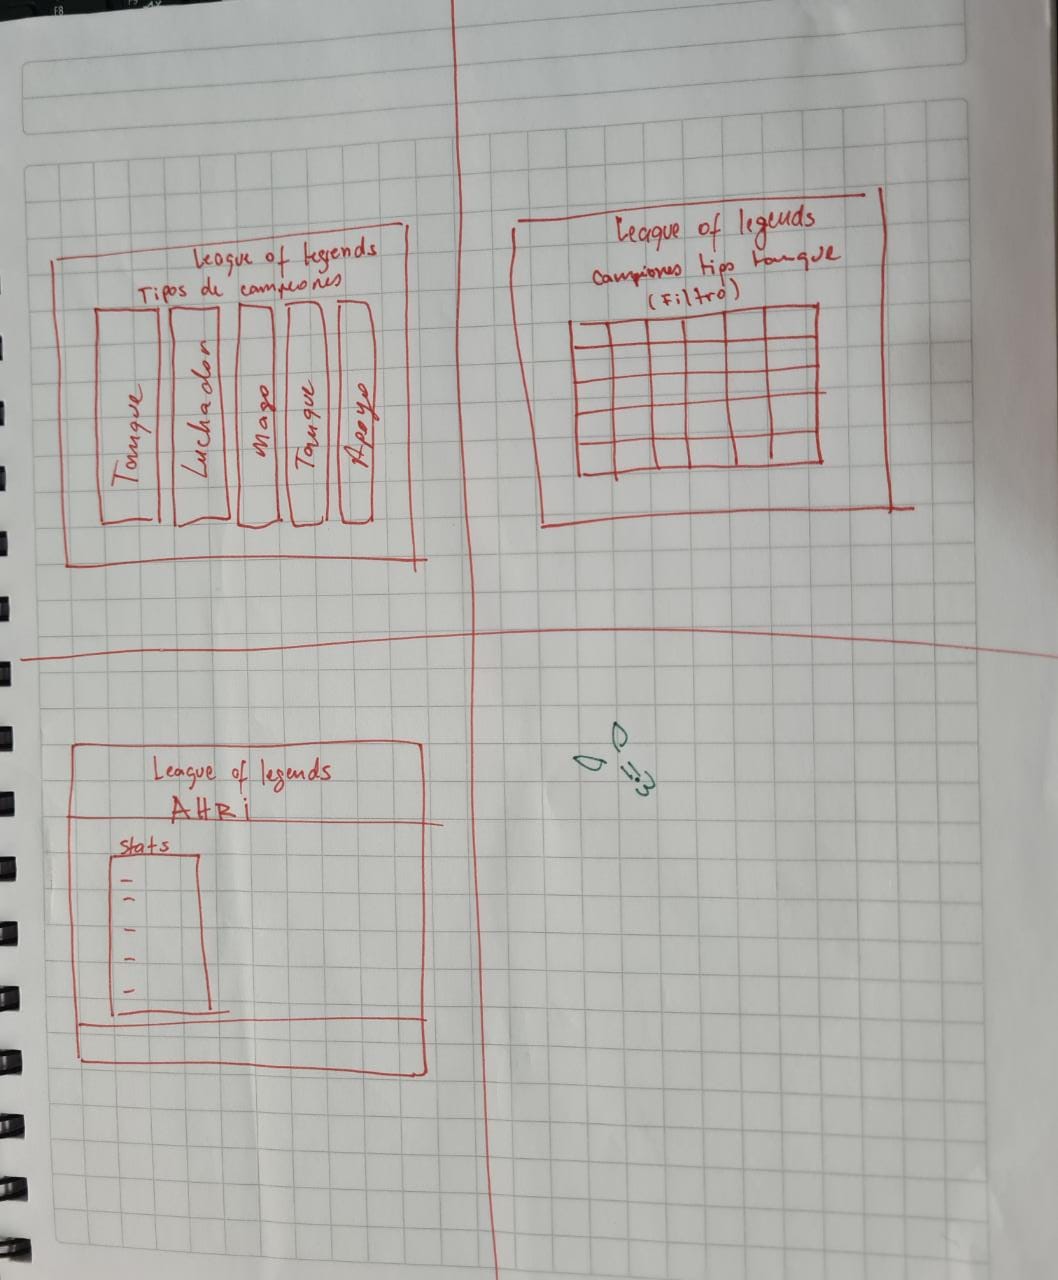 F8
League of legends
Tipos de campeones
Tanque
Luchador
Mago
Tanque
Apoyo
League of legends
Campiones tipo tanque
(Filtro)
League of legends
AHRi
Stats